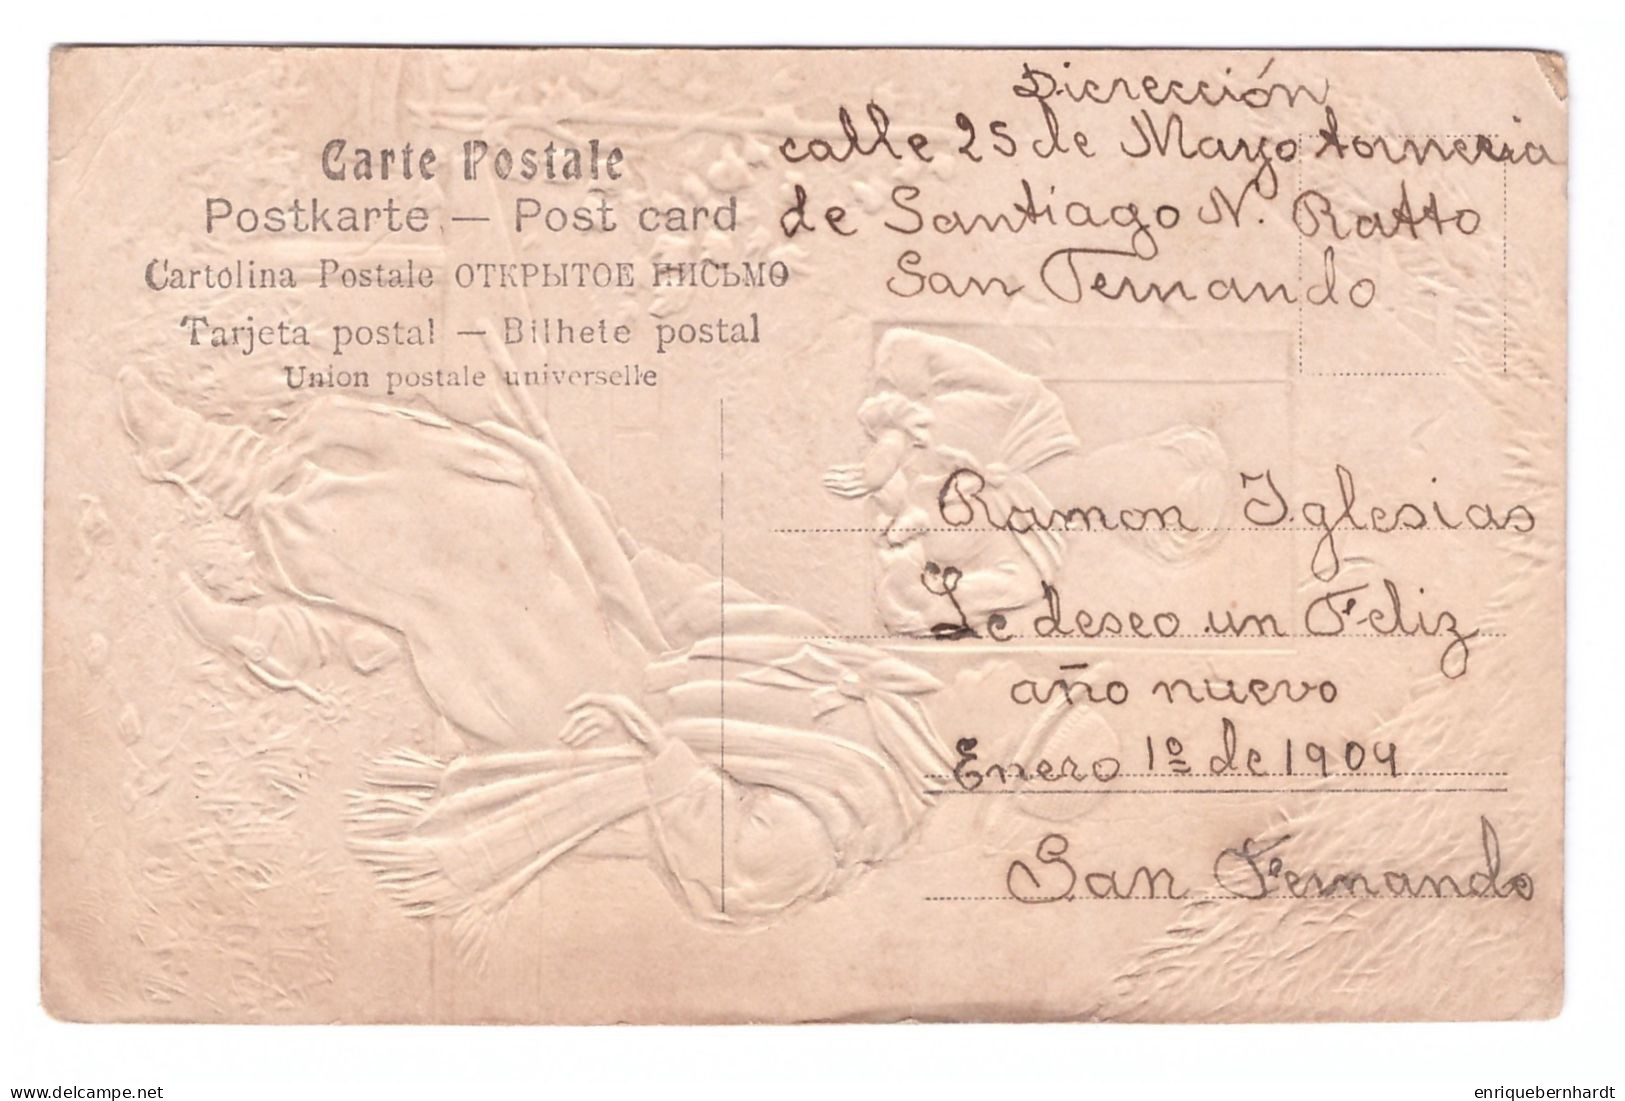 Carte Postale
Postkarte — Post card
Cartolina Postale ОТКРЫТОЕ ПИСЬМО
Tarjeta postal — Bilhete postal
Union postale universelle
Dicrección
calle 25 de Mayo torneria
de Santiago N. Ratto
San Fernando
Ramon Iglesias
Le deseo un Feliz
año nuevo
Enero 1º de 1909
San Fernando
delcampe.net
enriquebernhardt